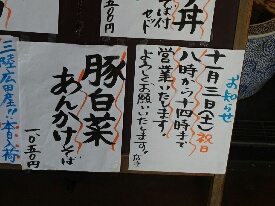 お知らせ
十一月三日(土)祝日
八時から十四時まで
営業いたします。
よろしくお願いいたします。
豚白菜
あんかけそば
一〇五〇円
三陸・広田産!!
本日入荷
丼
そば付
セット